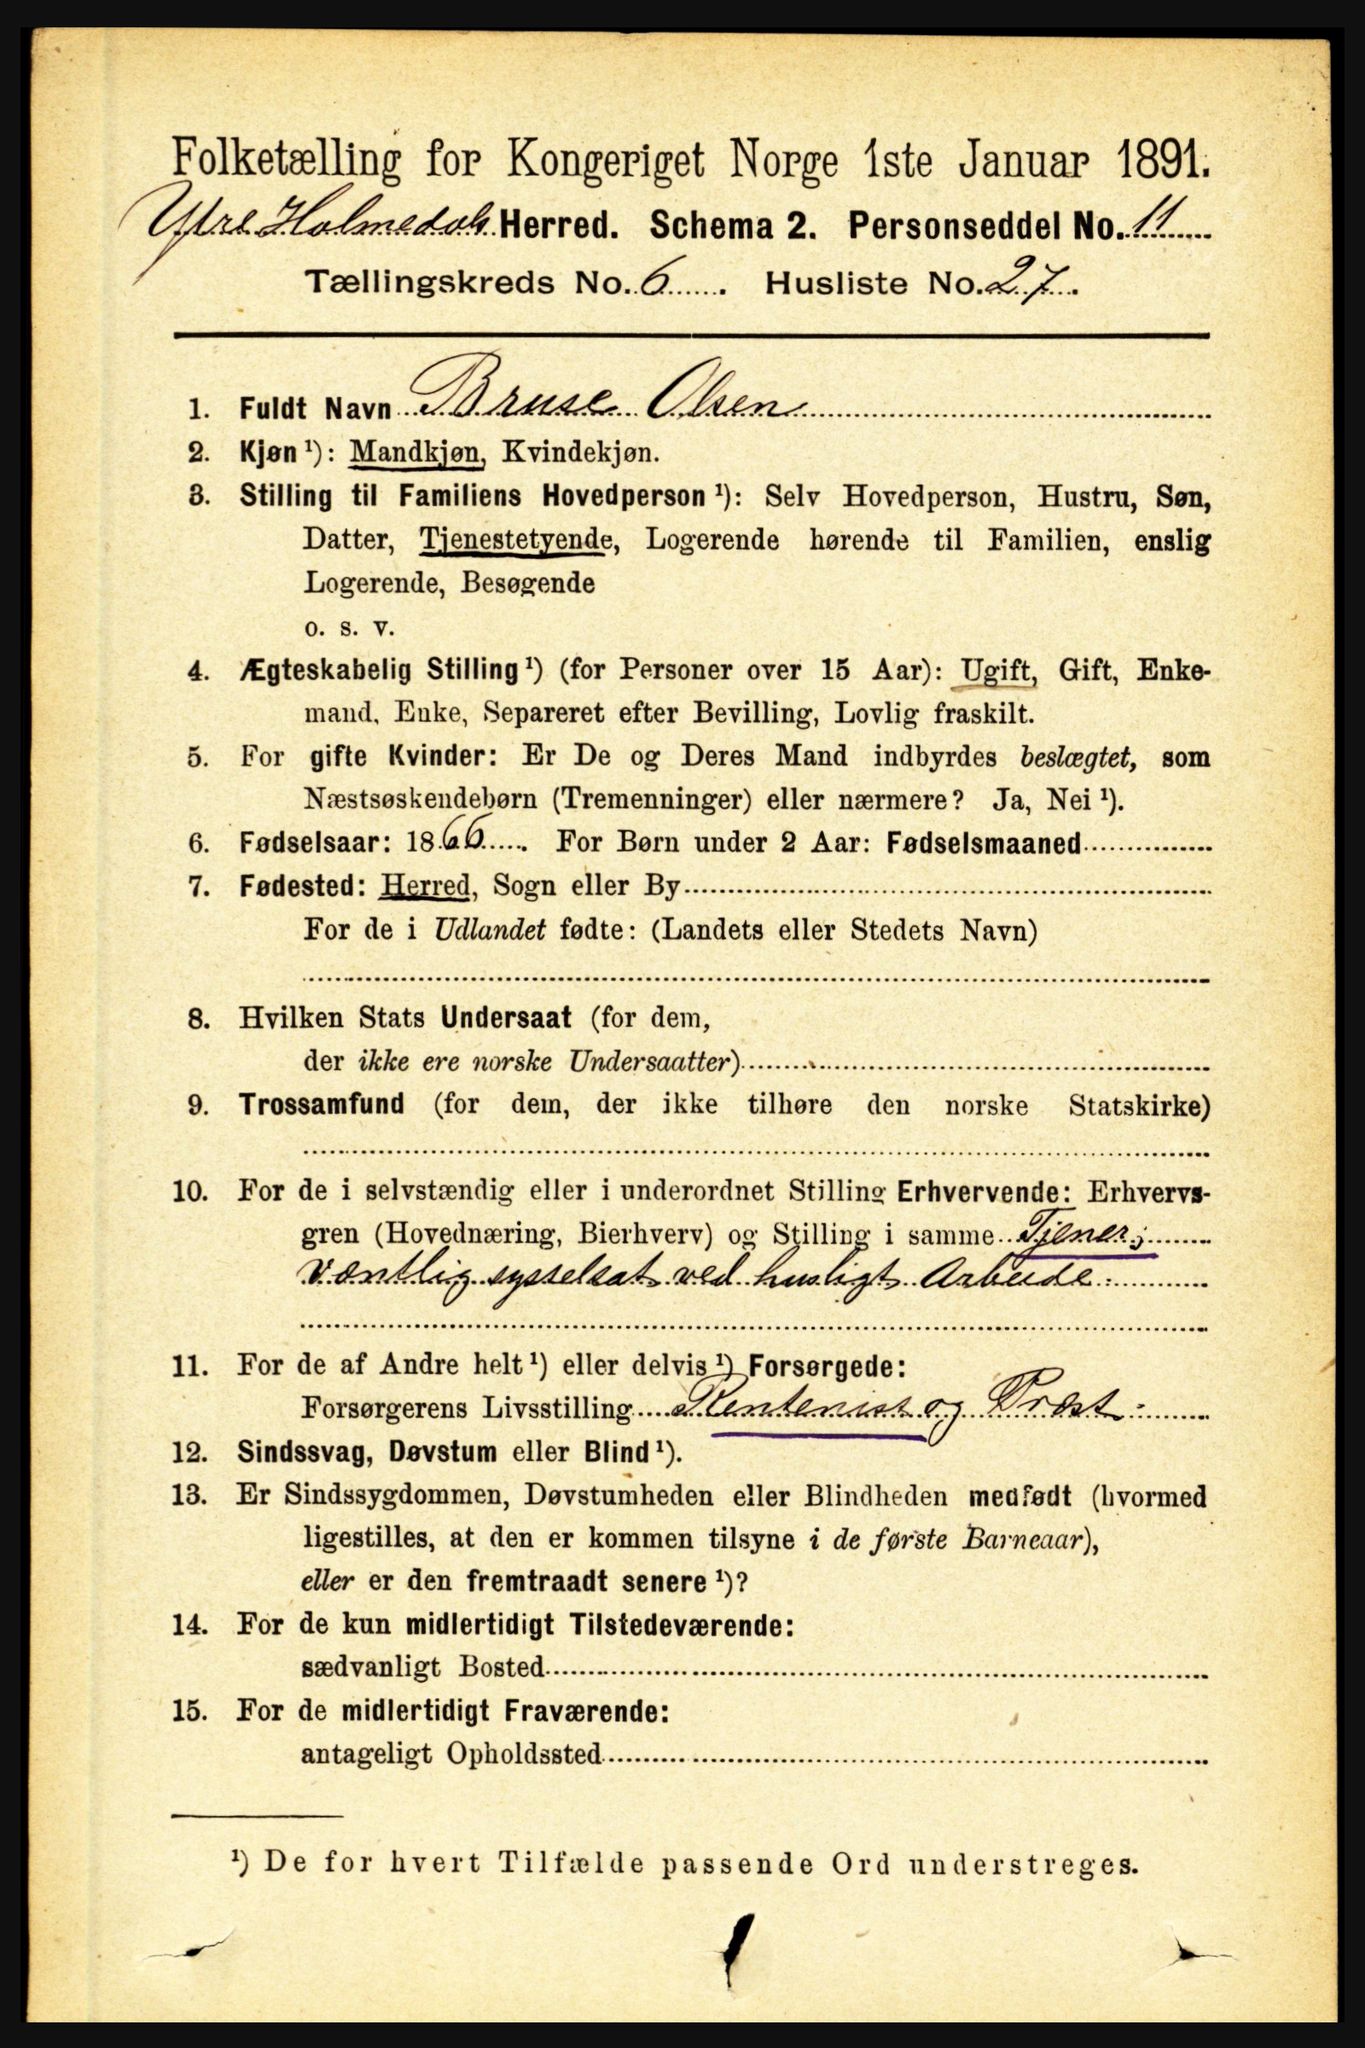 Folketælling for Kongeriget Norge 1ste Januar 1891.
Ytre Holmedals Herred. Schema 2. Personseddel No. 11
Tællingskreds No. 6. Husliste No. 27.
1. Fuldt Navn Bruse Olsen
2. Kjøn ¹): Mandkjøn, Kvindekjøn.
3. Stilling til Familiens Hovedperson ¹): Selv Hovedperson, Hustru, Søn,
Datter, Tjenestetyende, Logerende hørende til Familien, enslig
Logerende, Besøgende
o. s. v.
4. Ægteskabelig Stilling ¹) (for Personer over 15 Aar): Ugift, Gift, Enke-
mand, Enke, Separeret efter Bevilling, Lovlig fraskilt.
5. For gifte Kvinder: Er De og Deres Mand indbyrdes beslægtet, som
Næstsøskendebørn (Tremenninger) eller nærmere? Ja, Nei ¹).
6. Fødselsaar: 1866. For Børn under 2 Aar: Fødselsmaaned
7. Fødested: Herred, Sogn eller By
For de i Udlandet fødte: (Landets eller Stedets Navn)
8. Hvilken Stats Undersaat (for dem,
der ikke ere norske Undersaatter)
9. Trossamfund (for dem, der ikke tilhøre den norske Statskirke)
10. For de i selvstændig eller i underordnet Stilling Erhvervende: Erhvervs-
gren (Hovednæring, Bierhverv) og Stilling i samme Tjener;
væntlig sysselsat ved husligt Arbeide.
11. For de af Andre helt ¹) eller delvis ¹) Forsørgede:
Forsørgerens Livsstilling Rentenist og Præst.
12. Sindssvag, Døvstum eller Blind ¹).
13. Er Sindssygdommen, Døvstumheden eller Blindheden medfødt (hvormed
ligestilles, at den er kommen tilsyne i de første Barneaar),
eller er den fremtraadt senere ¹)?
14. For de kun midlertidigt Tilstedeværende:
sædvanligt Bosted
15. For de midlertidigt Fraværende:
antageligt Opholdssted
¹) De for hvert Tilfælde passende Ord understreges.